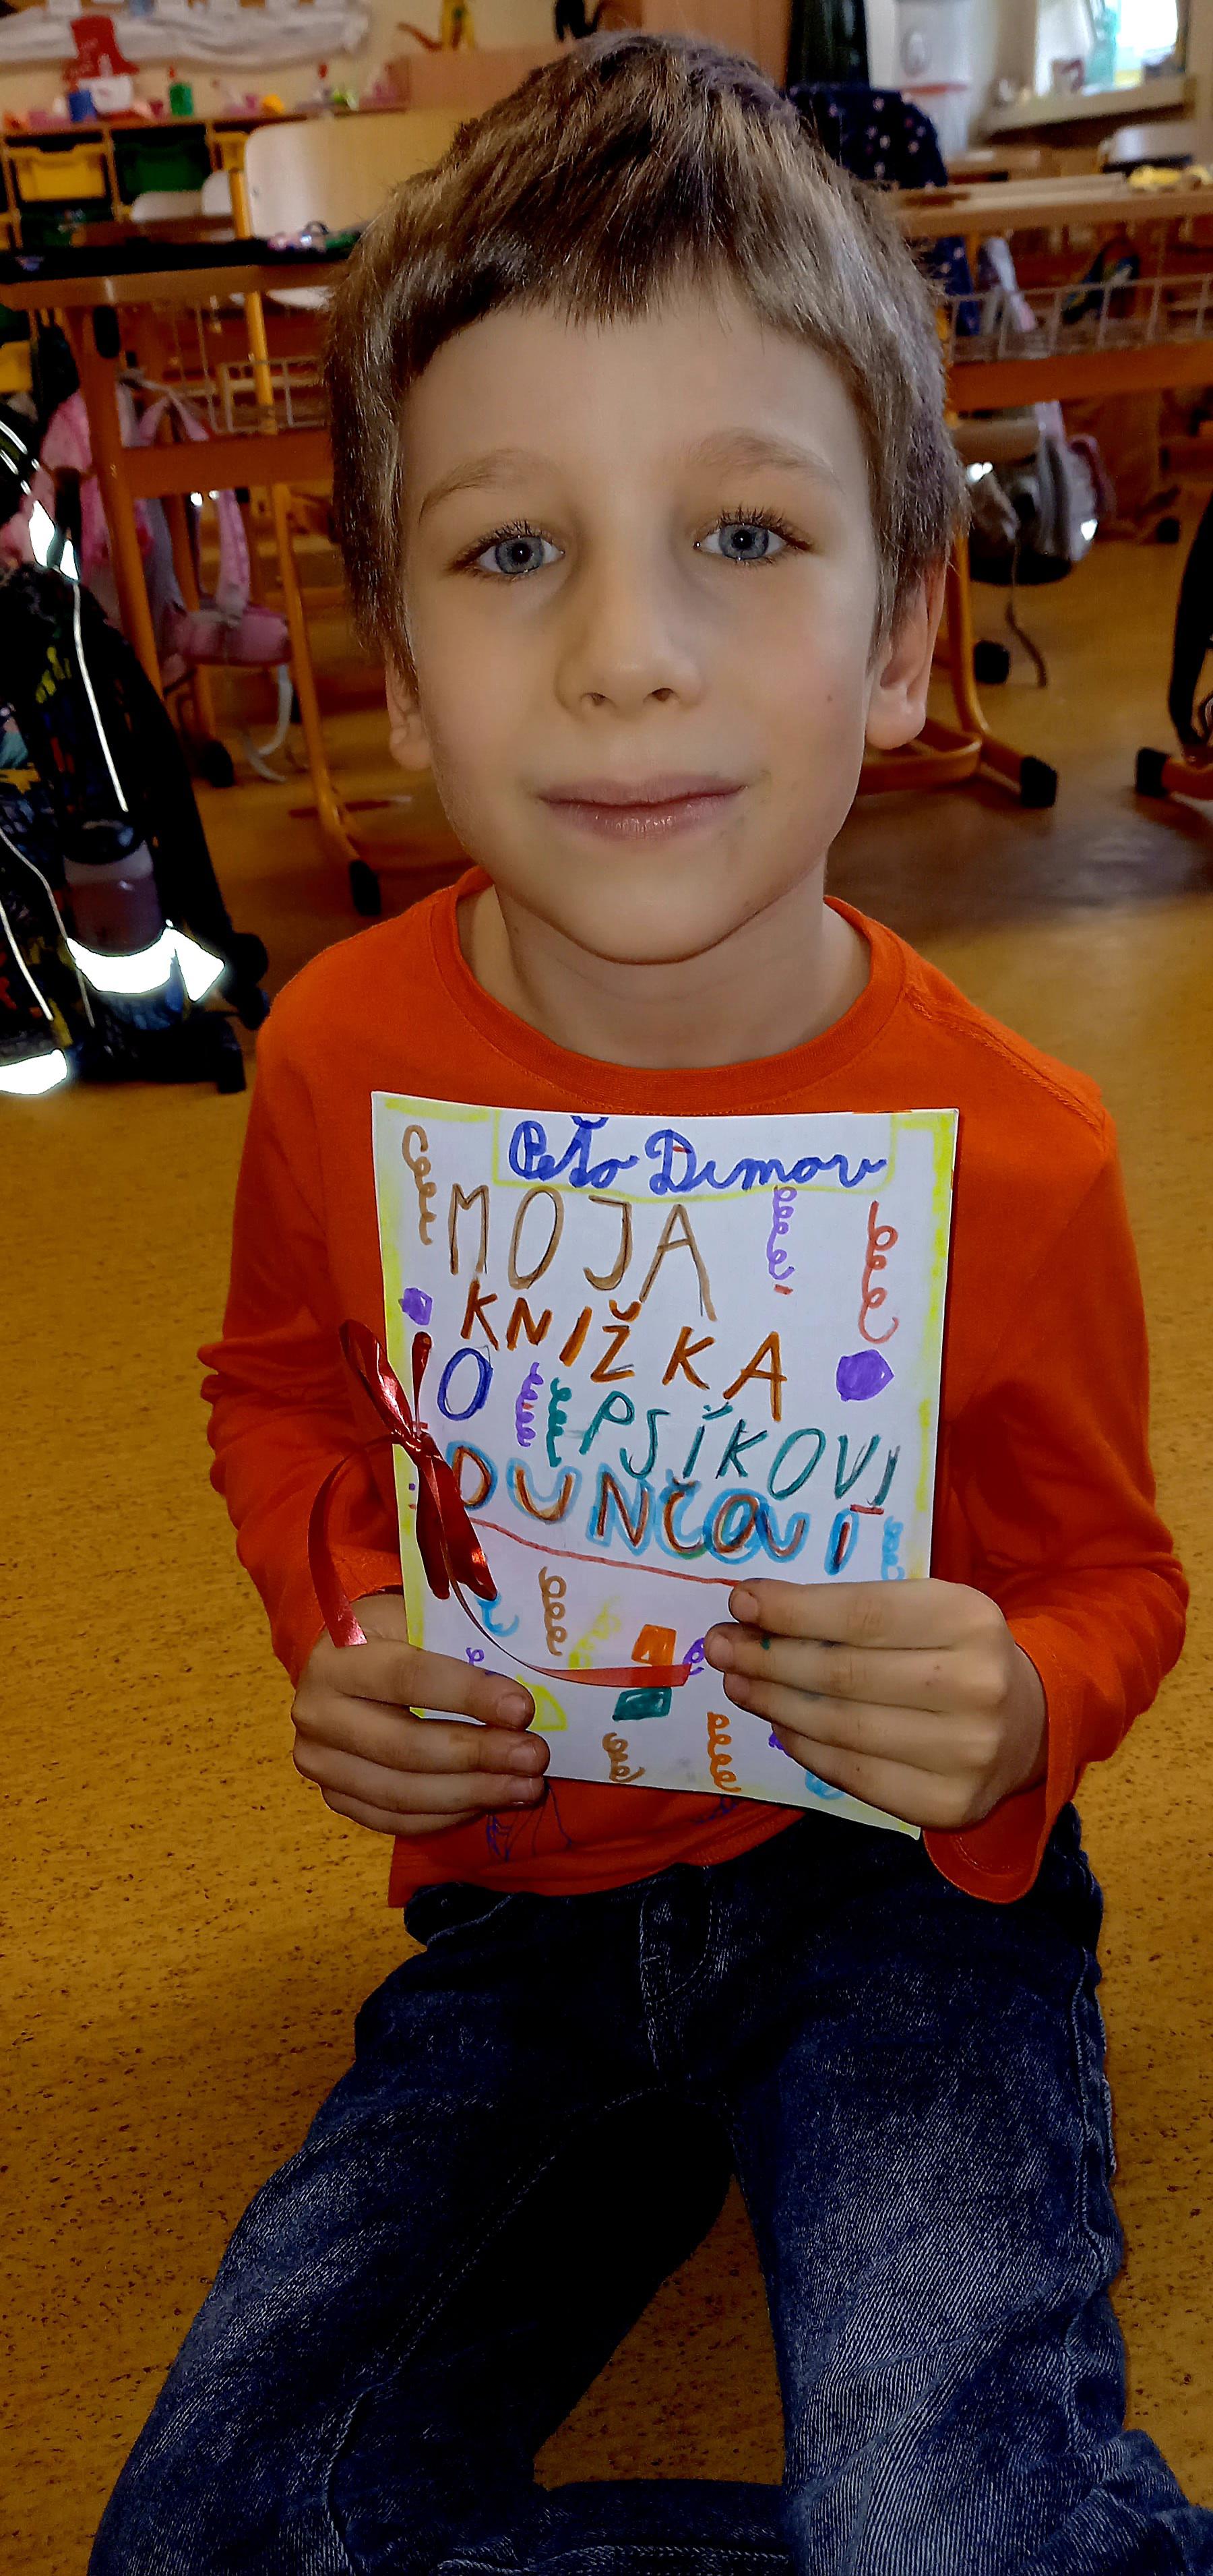 Peťo Dimov
MOJA
KNIŽKA
O PSÍKOVI
DUNČOVI